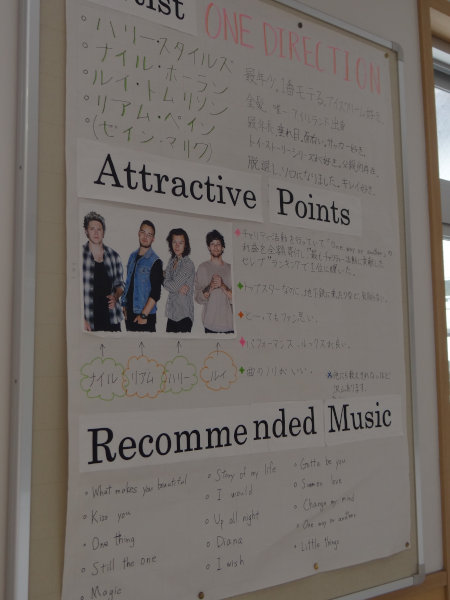 tist
ONE DIRECTION
○ハリー・スタイルズ
最年少。1番モテる。アイスクリーム好き。
○ナイル・ホーラン
金髪。唯一アイルランド出身
○ルイ・トムリンソン
最年長。
サッカー好き。
○リアム・ペイン
トイ・ストーリーシリーズ大好き。父親的存在。
○(ゼイン・マリク)
脱退し、ソロになりました。キレイ好き。
Attractive Points
チャリティー活動を行っていて"One way or another"の
利益を全額寄付し"最もチャリティー活動に貢献した
セレブ"ランキングで1位に輝いた。
トップスターなのに、地下鉄に乗ったりなど、気取らない。
と──ってもファン思い。
パフォーマンス、ルックスが良い。
曲のノリがいい。
ナイル リアム ハリー ルイ
Recommended Music
○ What makes you beautiful
○ Kiss you
○ One thing
○ Still the one
○ Magic
○ Story of my life
○ I would
○ Up all night
○ Diana
○ I wish
○ Gotta be you
○ Summer love
○ Change my mind
○ One way or another
○ Little things